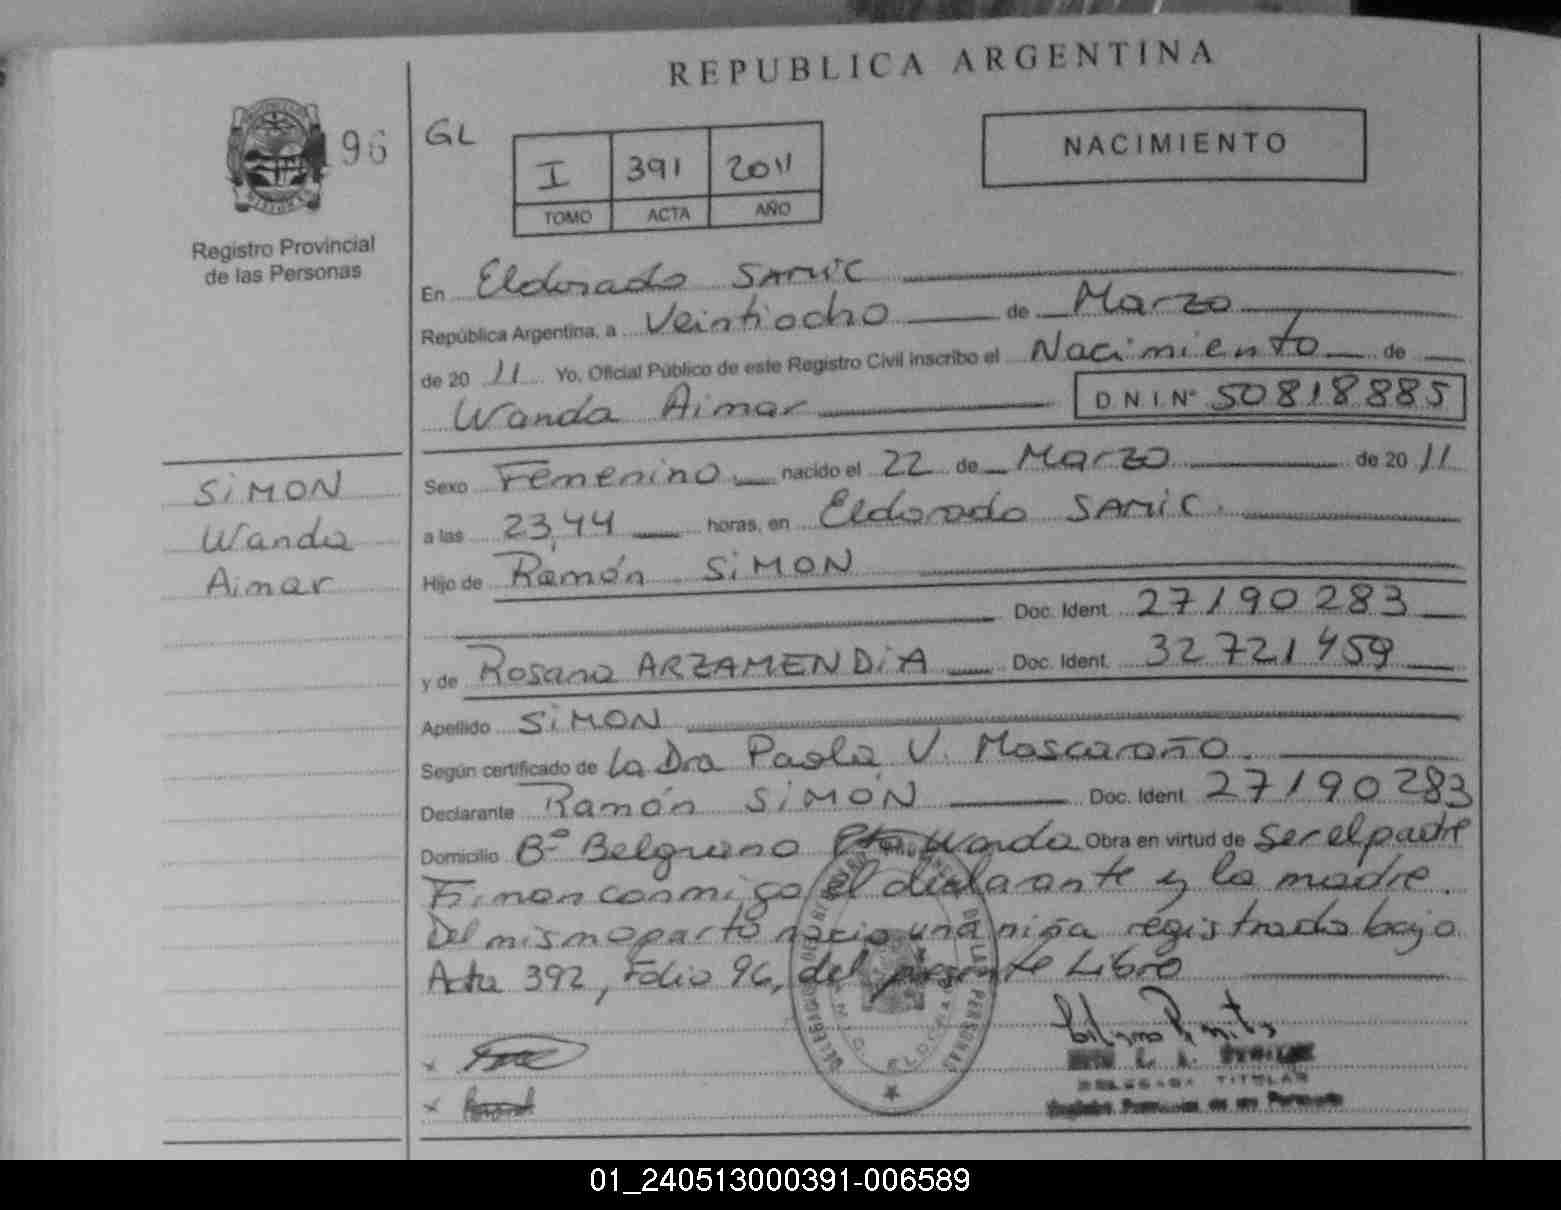 REPUBLICA ARGENTINA
96
GL
I 391 2011
TOMO ACTA AÑO
NACIMIENTO
Registro Provincial
de las Personas
SiMON
Wanda
Aimar
En Eldorado SAMiC
República Argentina, a Veintiocho de Marzo
de 2011 Yo, Oficial Público de este Registro Civil inscribo el Nacimiento de
Wanda Aimar D.N.I.Nº 50818885
Sexo Femenino nacido el 22 de Marzo de 2011
a las 23,44 horas, en Eldorado SAMiC.
Hijo de Ramón SiMON
Doc. Ident. 27190283
y de Rosana ARZAMENDiA Doc. Ident. 32721459
Apellido SiMON
Según certificado de La Dra Paola V.
Declarante Ramón SiMON Doc. Ident. 27190283
Domicilio Bº Belgrano Wanda Obra en virtud de ser el padre
Firman conmigo el declarante y la madre.
Del mismo parto nacio una niña registrada bajo
Acta 392, Folio 96, del presente Libro
DELEGADA TITULAR
Registro Provincial de las Personas
01_240513000391-006589